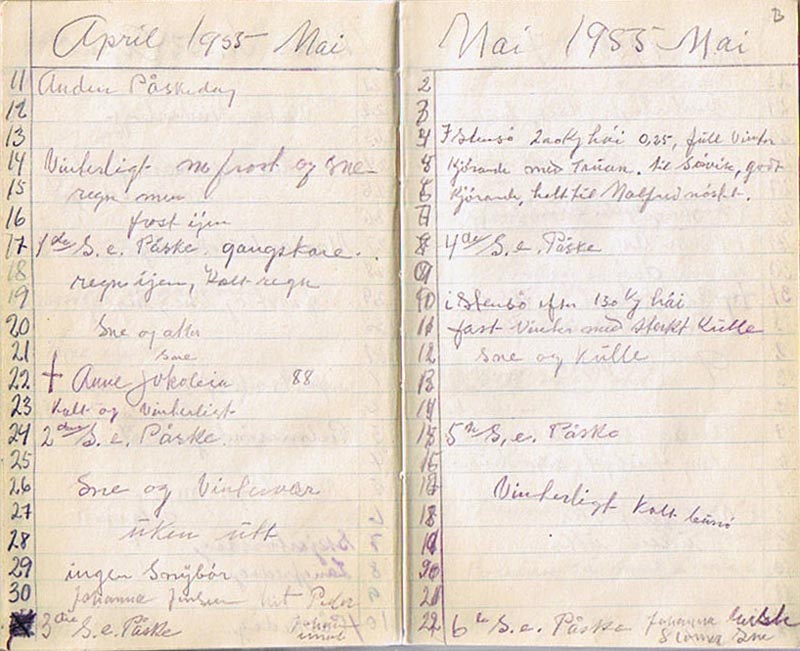 April 1955 Mai
11 Anden Påskedag
12
13
14 Vinterligt m frost og sne
15 regn men
16 frost ijen
17 1de S. e. Påske. gangskare.
18 regn ijen, Kalt regn
19
20 Sne og atter
21 Sne
22 † Anne Jokoleia 88
23 Kalt og Vinterligt
24 2den S. e. Påske.
25
26 Sne og Vinterveer
27
28 üken ütt
29 ingen Snÿbör
30 Johanna Jensen Peder
3die S. e. Påske
Mai 1955 Mai
3
2
3
4 I Stensö 200 Kg hói 0,25, füll Vinter
5 Kjörande med Trüan. til Sövik, godt
6 Kjörande, helt til Malfrednöstet.
7
8 4de S. e. Påske
9
10 i Stensö 130 Kg hói
11 fast Vinter med sterkt Külle
12 Sne og Külle
13
14
15 5te S. e. Påske
16
17 Vinterligt Kalt
18
19
20
21
22 6te S. e. Påske Johanna
Sne